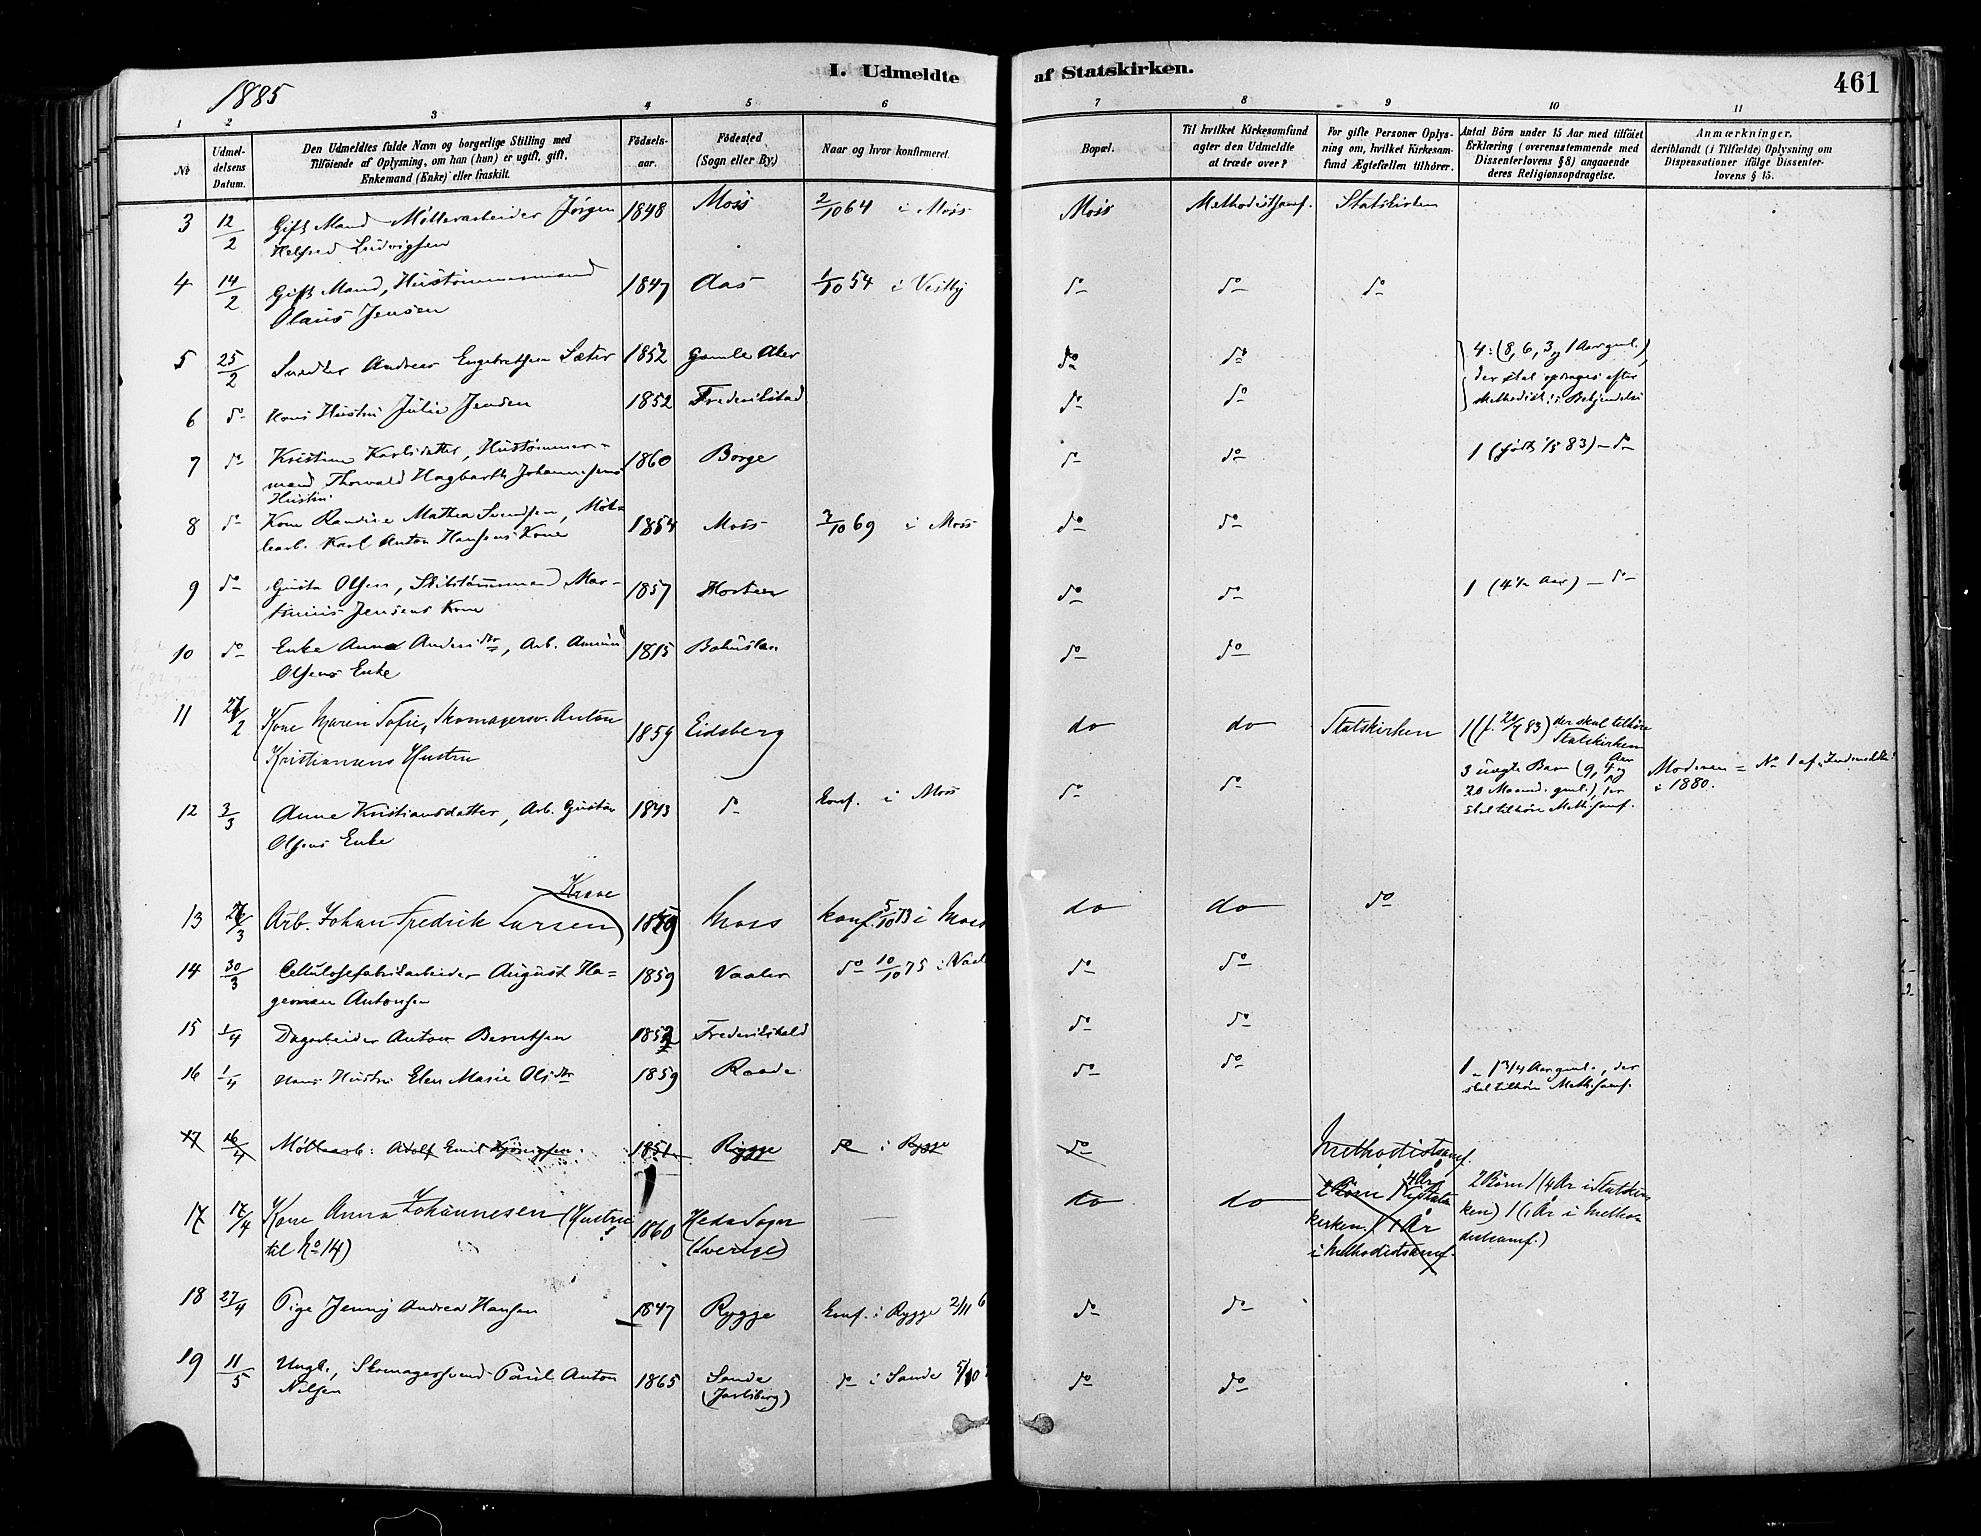 1885
I. Udmeldte af Statskirken.
461
1 2 3 4 5 6 7 8 9 10 11
No
Udmeldelsens Datum.
Den Udmeldtes fulde Navn og borgerlige Stilling med
Tilføiende af Oplysning, om han (hun) er ugift, gift,
Enkemand (Enke) eller fraskilt.
Fødselsaar.
Fødested
(Sogn eller By.)
Naar og hvor konfirmeret.
Bopæl.
Til hvilket Kirkesamfund
agter den Udmeldte
at træde over?
For gifte Personer Oplysning om, hvilket Kirkesamfund Ægtefællen tilhører.
Antal Børn under 15 Aar med tilføiet
Erklæring (overensstemmende med
Dissenterlovens § 8) angaaende
deres Religionsopdragelse.
Anmærkninger,
deriblandt (i Tilfælde) Oplysning om
Dispensationer ifølge Dissenterlovens § 15.
3 12/2 Gift Mand Møllerarbeider Jørgen 1848 Moss 2/10 64 i Moss Moss Methodistsamf. Statskirken
Helfred Ludvigsen
4 14/2 Gift Mand, Hustømmermand 1847 Aas 1/10 54 i Vestby do do do
Olaus Jensen
5 25/2 Andreas Engebretsen Sæter 1852 Gamle Aker do do 4: (8, 6, 3, 1 Aar gml.),
der skal opdrages efter
6 do Hans Hustru Julie Jensen 1852 Frederikstad do do Methodist. s Bekjendelse
7 do Kristine Karlsdatter, Hustømmermand Thorvald Hagbarth Johannesens 1860 Borge do do 1 (født 1/5 83) – do
Hustru
8 do Kone Randine Mathea Svendsen, 1854 Moss 3/10 69 i Moss do do
Karl Anton Hansens Kone
9 do Gusta Olsen, Skibstømmermand Mar- 1857 Horten do do 1 (4 1/2 Aar) – do
tinius Jensens Kone
10 do Enke Anna Andersdtr, Arb. 1815 Bohuslen do do
Olsens Enke
11 27/2 Kone Maren Sofie, Skomagersv. Anton 1859 Eidsberg do do Statskirken 1 (f. 83) der skal tilhøre
Kristiansens Hustru Statskirken
12 3/3 Anne Kristiansdatter, Arb. Gustav 1843 do Conf. i Moss do do 3 uægte Børn (9, 4 og Aar
20 Maaned. gml.), der
skal tilhøre Meth.samf. Moderen = No 1 af Indmeldte
i 1880.
Olsens Enke
13 Arb. Johan Fredrik Larsen Krave 1859 Moss konf. 5/10 73 i Moss do do do
14 30/3 Cellulosefabrikarbeider August Ha- 1859 Vaaler do 10/10 75 i do do
german Antonsen
15 1/4 Dagarbeider Anton Berntsen 1852 Frederikshald do do
16 1/4 Hans Hustru Elen Marie Olsdtr 1859 Raade do do 1 1 3/4 Aar gml., der
skal tilhøre Meth.samf.
17 16/4 Møllearb: Adolf Emil 1851 Rygge do i Rygge do
Methodistsamf.
17 17/4 Kone Anna Johannesen (Hustru 1860 Heda Sogn do do 2 Børn 1 (4 År i Statskir
til No 14) (Sverige) ken) 1 (1 År i Metho
distsamf.)
4 År
2 Børn 1
kirken, 1 1 År
i Methodistsamf.
18 27/4 Pige Jenny Andrea Hansen 1847 Rygge Conf. i Rygge 2/11 6 do do
19 11/5 Ungk., Skomagersvend Paul Anton 1865 Sande do i Sande do do
Nilsen (Jarlsberg)